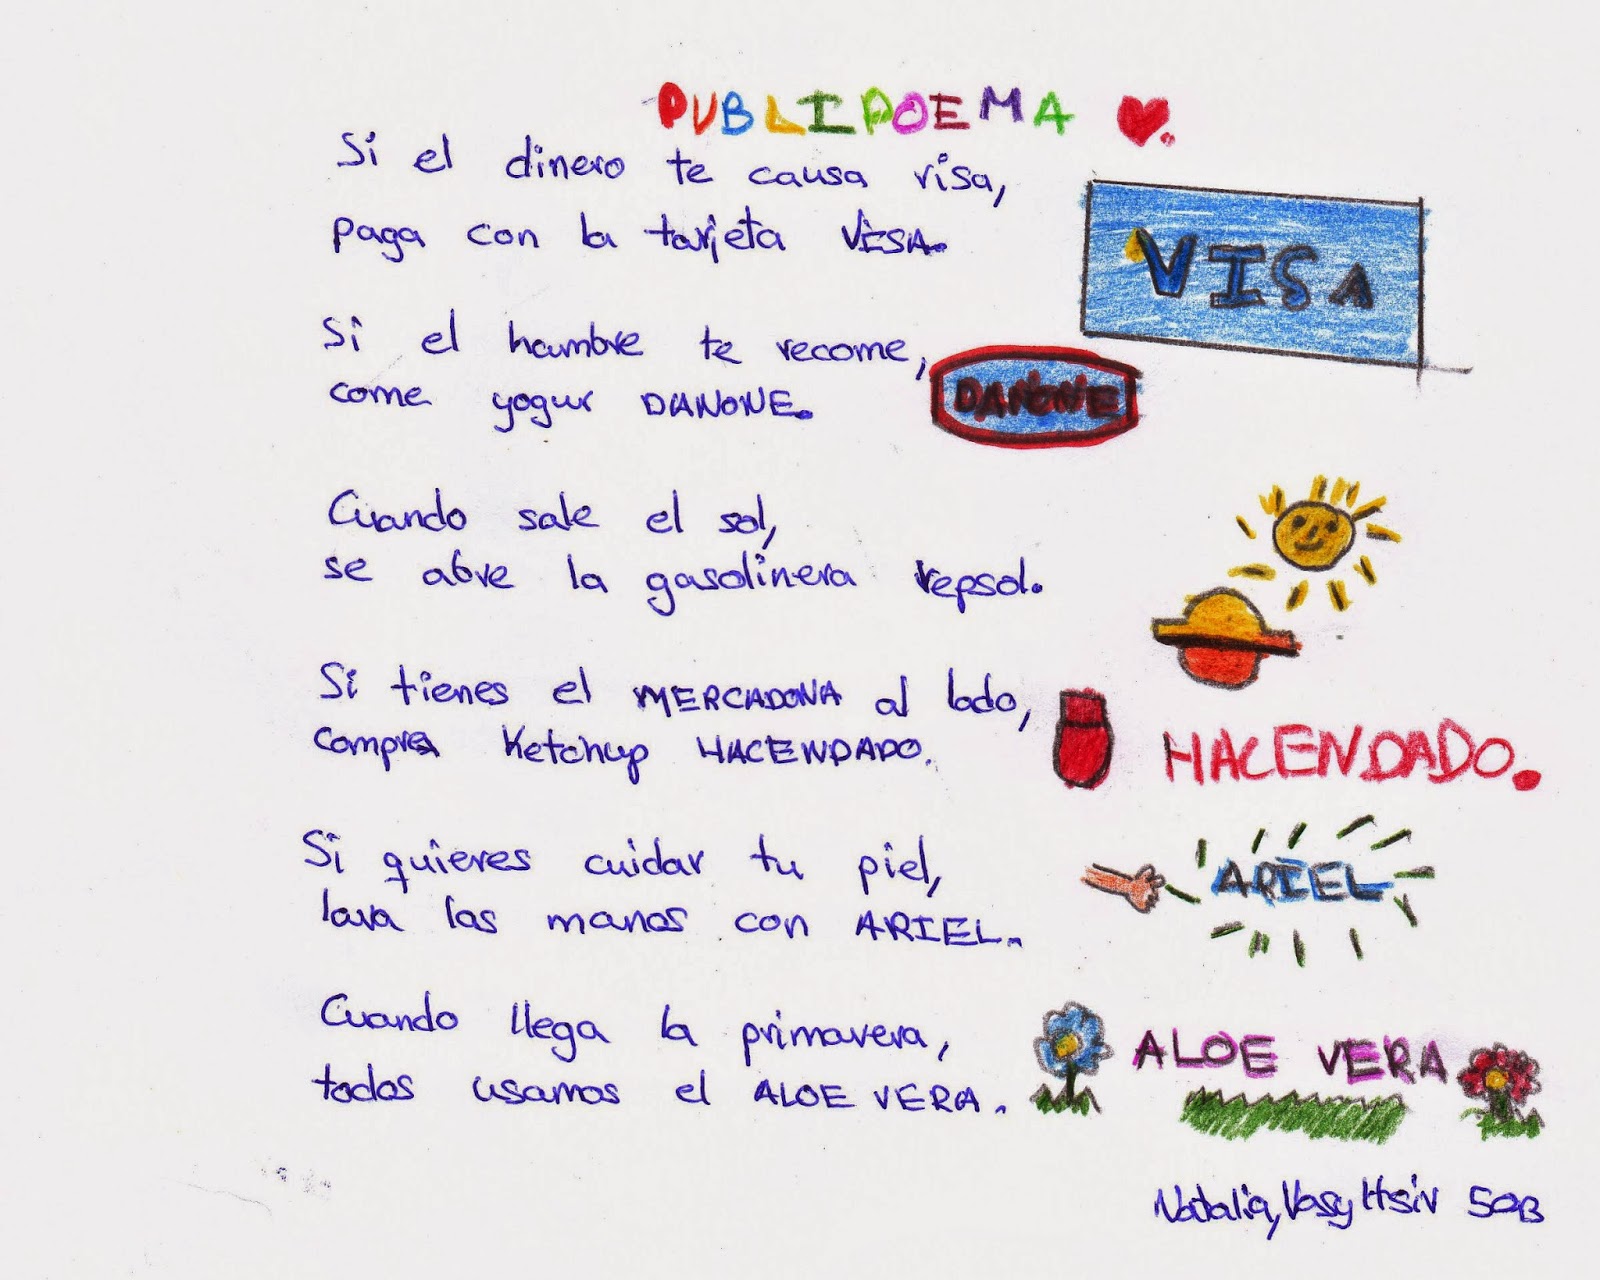 PUBLIPOEMA
Si el dinero te causa risa,
paga con la tarjeta VISA.
VISA
Si el hambre te recome,
come yogur DANONE.
DANONE
Cuando sale el sol,
se abre la gasolinera repsol.
Si tienes el MERCADONA al lado,
compra Ketchup HACENDADO.
HACENDADO.
Si quieres cuidar tu piel,
lava las manos con ARIEL.
ARIEL
Cuando llega la primavera,
todos usamos el ALOE VERA.
ALOE VERA
Natalia, 5ºB